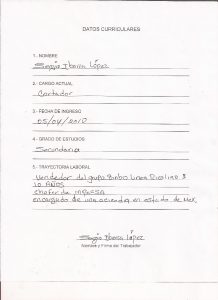 DATOS CURRICULARES
1.- NOMBRE
Sergio Ibarra López
2.- CARGO ACTUAL
Cortador
3.- FECHA DE INGRESO
05/04/2010
4.- GRADO DE ESTUDIOS
Secundaria
5.- TRAYECTORIA LABORAL
Vendedor del grupo Bimbo Linea Ricolino
10 AÑOS
chofer de
encargado de una en estado de Mex.
Sergio Ibarra López
Nombre y Firma del Trabajador